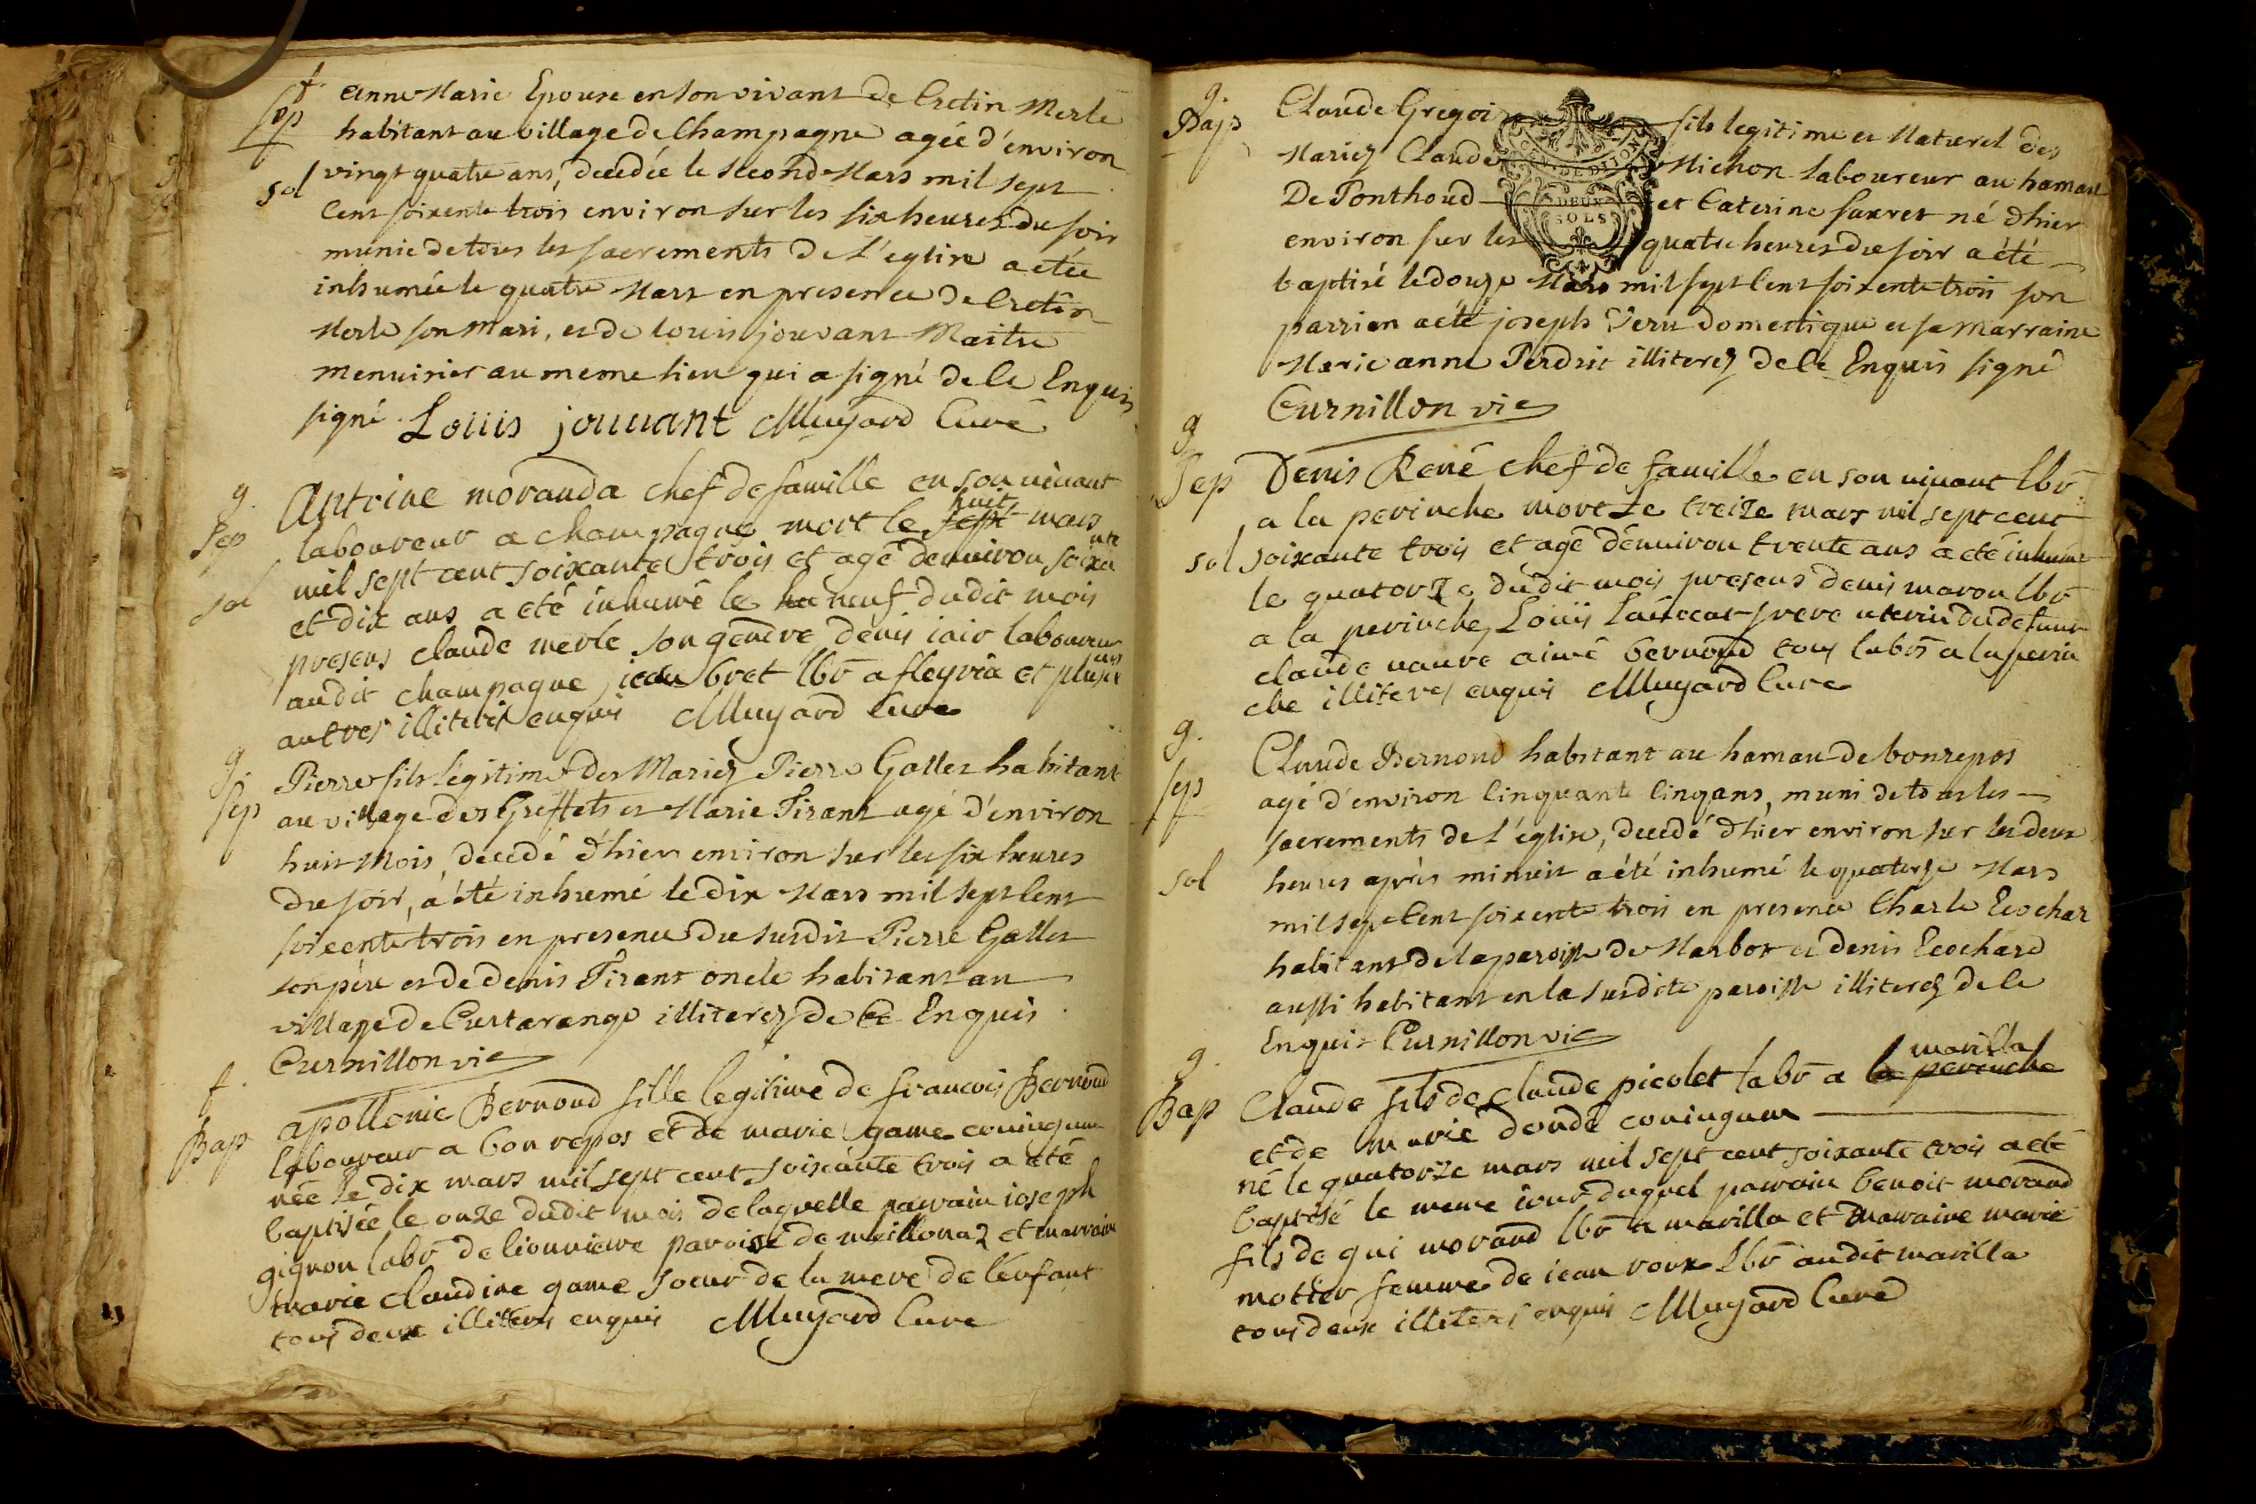 f.
Sep
sol
anne Marie Epouse en son vivant de Cretin Merle
habitant au village de Champagne agée d'environ
vingt quatre ans, decedée le second Mars mil sept
Cent soixente trois environ sur les six heures du soir
munie de tous les sacrements De L'eglise a etée
inhumée le quatre Mars en presence de Cretin
Merle son mari, et de louis jouvant Maitre
menuisier au meme lieu qui a signé de Ce Enquis
signé. Louis jouuant Muyard Curé
g.
Sep
sol
Antoine moranda chef de famille en son vivant
laboureur a champagne mort le sept huit mars
mil sept cent soixante trois et agé denviron soixante
et dix ans a eté inhumé le hu neuf dudit mois
presens claude merle son gendre denis iair laboureur
audit champagne jean bret lbr a fleyria et plusieurs
autres illiterés enquis Muyard Cure
g.
Sep
Pierre fils légitime des Mariez Pierre Gallet habitant
au village des Greffets et Marie Tirant agé d'environ
huit Mois, decedé d'hier environ sur les six heures
du soir, a été inhumé le dix Mars mil sept Cent
soixente trois en presence du susdit Pierre Gallet
son père et de denis Tirant oncle habitant au
village de Curtarange illiterez de Ce Enquis.
Curnillon vic
f.
Bap
apollonie Bernond fille legitime de francois Bernond
laboureur a bon repos et de marie game coniugum
née le dix mars mil sept cent soixante trois a eté
baptisée le onze dudit mois de laquelle parrain ioseph
gignon labr de lionniere paroisse de meillonaz et marraine
marie claudine game soeur de la mere de l'enfant
tous deux illiteres enquis Muyard Cure
g.
Bap
Claude Gregoire fils legitime et Naturel des
Mariez Claude Michon laboureur au hamau
De Ponthoud et Caterine faxret né d'hier
environ sur les quatre heures du soir a été
baptisé le douze Mars mil sept Cent soixente trois son
parrien a été joseph Veru domestique et sa marraine
Marie anne Perdrit illiterez de Ce Enquis signé
Curnillon vic
GEN DE DIJON
DEUX
SOLS
g
Sep
sol
Denis René chef de famille en son vivant lbr
a la perinche mort le treize mars mil sept cent
soixante trois et agé d'enuiron trente ans a eté inhumé
le quatorze dudit mois presens denis maron lbr
a la perinche, Louis frere uterin du defunt
claude aimé bernond tous labrs a la perin
che illiteres enquis Muyard Cure
g.
Sep
sol
Claude Bernond habitant au hamau de bonrepos
agé d'environ Cinquante Cinq ans, muni de tous les
sacrements de l'eglise, decedé d'hier environ sur les deux
heures après minuit a été inhumé le quatorze Mars
mil sept Cent soixente trois en presence Charle Ecochar
habitant de la paroisse de Marbox et denis Ecochard
aussi habitant en la susdite paroisse illiterez de Ce
Enquis Curnillon vic
g.
Bap
Claude fils de claude picolet labr a la perinche marilla
et de marie dondé coniugum
né le quatorze mars mil sept cent soixante trois a eté
baptisé le meme iour duquel parrain benoit morand
fils de gui morand lbr a marilla et marraine marie
motier femme de iean roux lbr audit marilla
tous deux illiteres enquis Muyard Curé